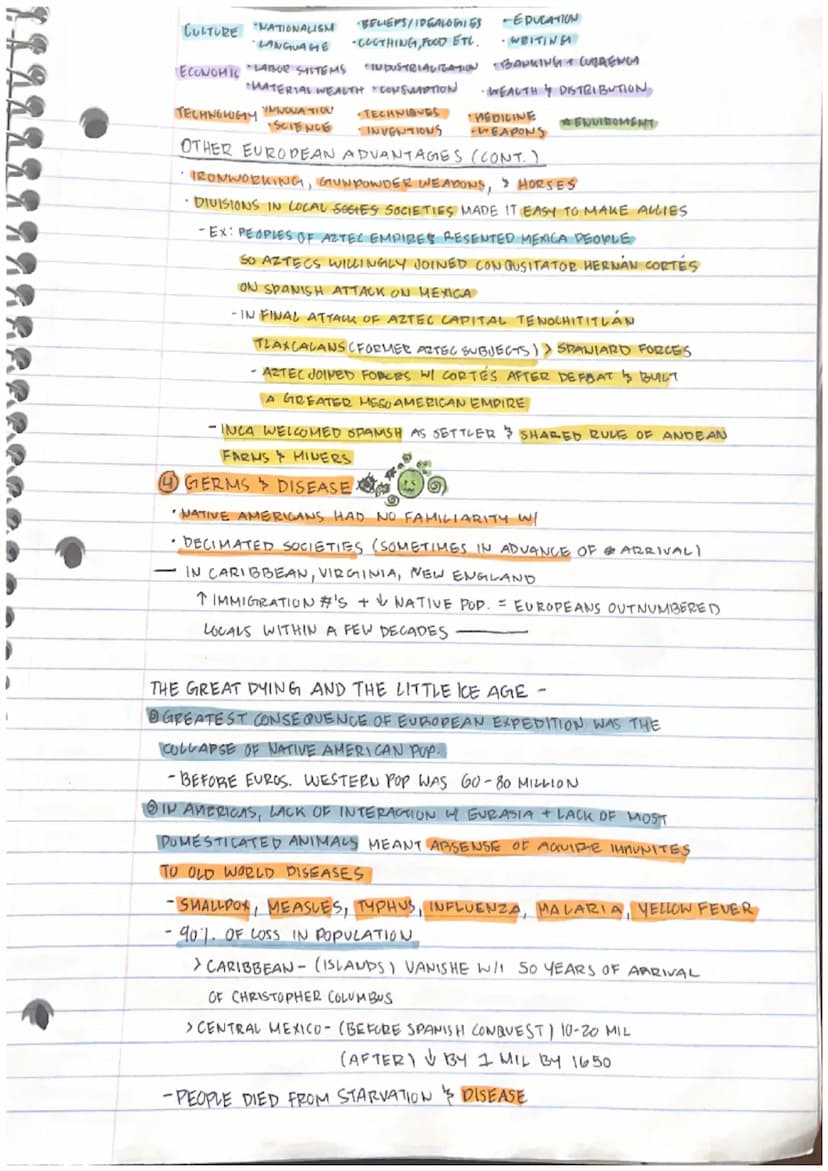 CULTURE · NATIONALISM · BELIEFS/IDEALOGIES · EDUCATION
· LANGUAGE · CLOTHING, FOOD ETC. · WRITING
ECONOMIC · LABOR SYSTEMS · INDUSTRIALIZATION · BANKING + CURRENCY
· MATERIAL WEALTH · CONSUMPTION · WEALTH & DISTRIBUTION
TECHNOLOGY · INNOVATION · TECHNIQUES · MEDICINE * ENVIROMENT
· SCIENCE · INVENTIONS · WEAPONS
OTHER EUROPEAN ADVANTAGES (CONT.)
· IRONWORKING, GUNPOWDER WEAPONS, & HORSES
· DIVISIONS IN LOCAL SOCIETIES MADE IT EASY TO MAKE ALLIES
- EX: PEOPLES OF AZTEC EMPIRE RESENTED MEXICA PEOPLE
SO AZTECS WILLINGLY JOINED CONQUSITATOR HERNÁN CORTÉS
ON SPANISH ATTACK ON MEXICA
- IN FINAL ATTACK OF AZTEC CAPITAL TENOCHITITLÁN
TLAXCALANS (FORMER AZTEC SUBJECTS) > SPANIARD FORCES
- AZTEC JOINED FORCES W/ CORTÉS AFTER DEFEAT & BUILT
A GREATER MESOAMERICAN EMPIRE
- INCA WELCOMED SPANISH AS SETTLER & SHARED RULE OF ANDEAN
FARMS & MINERS
④ GERMS & DISEASE
· NATIVE AMERICANS HAD NO FAMILIARITY W/
· DECIMATED SOCIETIES (SOMETIMES IN ADVANCE OF ARRIVAL)
— IN CARIBBEAN, VIRGINIA, NEW ENGLAND
↑ IMMIGRATION #'S + ↓ NATIVE POP. = EUROPEANS OUTNUMBERED
LOCALS WITHIN A FEW DECADES —
THE GREAT DYING AND THE LITTLE ICE AGE -
① GREATEST CONSEQUENCE OF EUROPEAN EXPEDITION WAS THE
COLLAPSE OF NATIVE AMERICAN POP.
- BEFORE EUROS. WESTERN POP WAS 60-80 MILLION
② IN AMERICAS, LACK OF INTERACTION W/ EURASIA + LACK OF MOST
DOMESTICATED ANIMALS MEANT ABSENSE OF AQUIRE IMMUNITES
TO OLD WORLD DISEASES
- SMALLPOX, MEASLES, TYPHUS, INFLUENZA, MALARIA, YELLOW FEVER
- 90% OF LOSS IN POPULATION
> CARIBBEAN - (ISLANDS) VANISHE W/I 50 YEARS OF ARRIVAL
OF CHRISTOPHER COLUMBUS
> CENTRAL MEXICO - (BEFORE SPANISH CONQUEST) 10-20 MIL
(AFTER) ↓ BY 1 MIL BY 1650
- PEOPLE DIED FROM STARVATION & DISEASE